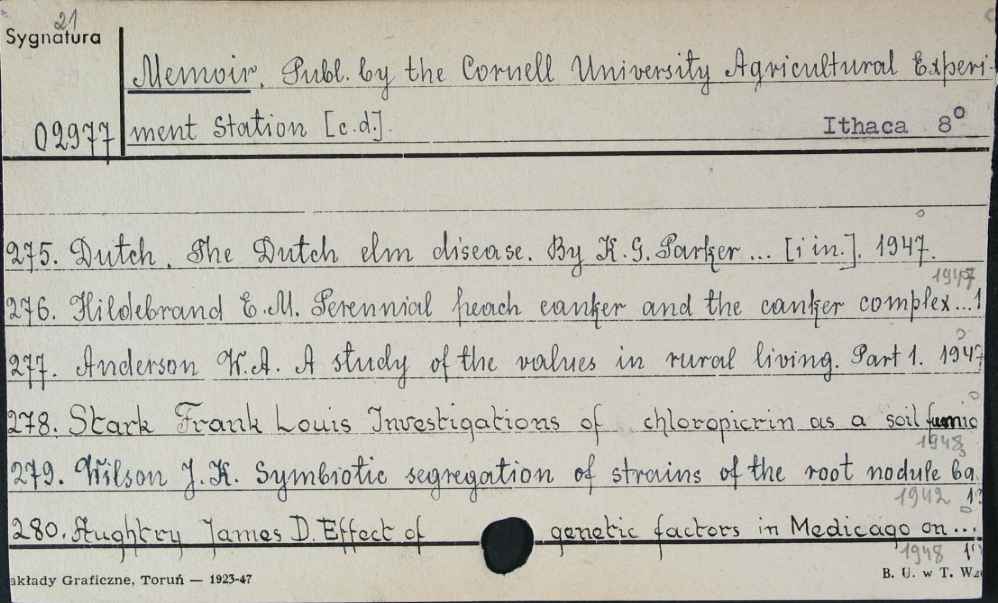 21
Sygnatura
Memoir. Publ. by the Cornell University Agricultural Experi-
02977 ment Station [c.d.]. Ithaca 8°
275. Dutch. The Dutch elm disease. By K.G. Parker ... [i in.]. 1947.
1947
276. Hildebrand E.M. Perennial peach canker and the canker complex...1
277. Anderson W.A. A study of the values in rural living. Part 1. 1947
278. Stark Frank Louis Investigations of chloropicrin as a soil fumig
1948
279. Wilson J.K. Symbiotic segregation of strains of the root nodule ba
1942
280. Aughtry James D. Effect of genetic factors in Medicago on...
1948
akłady Graficzne, Toruń — 1923-47
B. U. w T. Wz